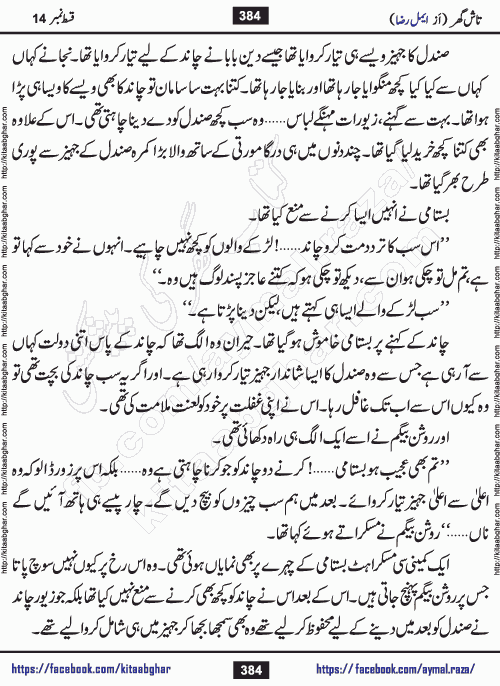 تاش گھر (از ایمل رضا)
384
قسط نمبر 14
صندل کا جہیز ویسے ہی تیار کروایا تھا جیسے دین بابا نے چاند کے لیے تیار کروایا تھا۔ نجانے کہاں
کہاں سے کیا کیا کچھ منگوایا جا رہا تھا اور بنایا جا رہا تھا۔ کتنا بہت سا سامان تو چاند کا بھی ویسے کا ویسا ہی پڑا
ہوا تھا۔ بہت سے گہنے، زیورات مہنگے لباس......وہ سب کچھ صندل کو دے دینا چاہتی تھی۔ اس کے علاوہ
بھی کتنا کچھ خرید لیا گیا تھا۔ چند دنوں میں ہی درگا مورتی کے ساتھ والا بڑا کمرہ صندل کے جہیز سے پوری
طرح بھر گیا تھا۔
بسامی نے انہیں ایسا کرنے سے منع کیا تھا۔
”اس سب کا تردد مت کرو چاند......! لڑکے والوں کو کچھ نہیں چاہیے۔ انہوں نے خود سے کہا تو
ہے، تم مل تو چکی ہو ان سے، دیکھ تو چکی ہو کہ کتنے عاجز پسند لوگ ہیں وہ۔“
”سب لڑکے والے ایسا ہی کہتے ہیں، لیکن دینا پڑتا ہے۔“
چاند کے کہنے پر بسامی خاموش ہو گیا تھا۔ حیران وہ الگ تھا کہ چاند کے پاس اتنی دولت کہاں
سے آ رہی ہے جس سے وہ صندل کا ایسا شاندار جہیز تیار کروا رہی ہے۔ اور اگر یہ سب چاند کی بچت تھی تو
وہ کیوں اس سے اب تک غافل رہا۔ اس نے اپنی غفلت پر خود کو لعنت ملامت کی تھی۔
اور روشن بیگم نے اسے ایک الگ ہی راہ دکھائی تھی۔
”تم بھی عجیب ہو بسامی......! کرنے دو چاند کو جو کرنا چاہتی ہے وہ......بلکہ اس پر زور ڈالو کہ وہ
اعلیٰ سے اعلیٰ جہیز تیار کروائے۔ بعد میں ہم سب چیزوں کو بیچ دیں گے۔ چار پیسے ہی ہاتھ آئیں گے
ناں......“ روشن بیگم نے مسکراتے ہوئے کہا تھا۔
ایک کمینی سی مسکراہٹ بسامی کے چہرے پر بھی نمایاں ہوئی تھی۔ وہ اس رخ پر کیوں نہیں سوچ پاتا
جس پر روشن بیگم پہنچ جاتی ہیں۔ اس کے بعد اس نے چاند کو کچھ بھی کرنے سے منع نہیں کیا تھا بلکہ جو زیور چاند
نے صندل کو بعد میں دینے کے لیے محفوظ کر لیے تھے وہ بھی سمجھا بجھا کر جہیز میں ہی شامل کروا لیے تھے۔
https://facebook.com/kitaabghar
384
https://facebook.com/aymal.raza/
http://kitaabghar.com http://kitaabghar.com http://kitaabghar.com http://kitaabghar.com http://kitaabghar.com
http://kitaabghar.com http://kitaabghar.com http://kitaabghar.com http://kitaabghar.com http://kitaabghar.com